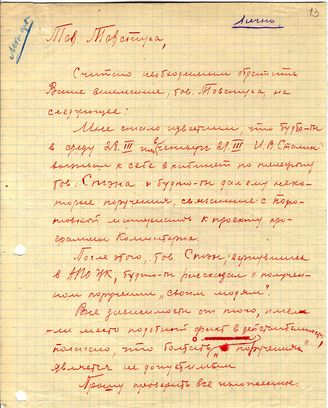 13
Лично
Тов. Товстуха,
Считаю необходимым обратить
Ваше внимание, тов. Товстуха, на
следующее:
Мне стало известным, что будто-бы
в среду 28.III или четверг 29.III И.В. Сталин
вызывал к себе в кабинет по телефону
тов. Стэна и будто-бы дал ему неко-
торые поручения, связанные с подго-
товкой материалов к проекту про-
граммы Коминтерна.
После этого, тов. Стэн, вернувшись
в АПО ЦК, будто-бы рассказал о получен-
ном поручении "своим людям".
Вне зависимости от того, имел-
ли место подобный факт в действительности,
полагаю, что болтать о "поручениях"
является не допустимым
Прошу проверить все изложенное.